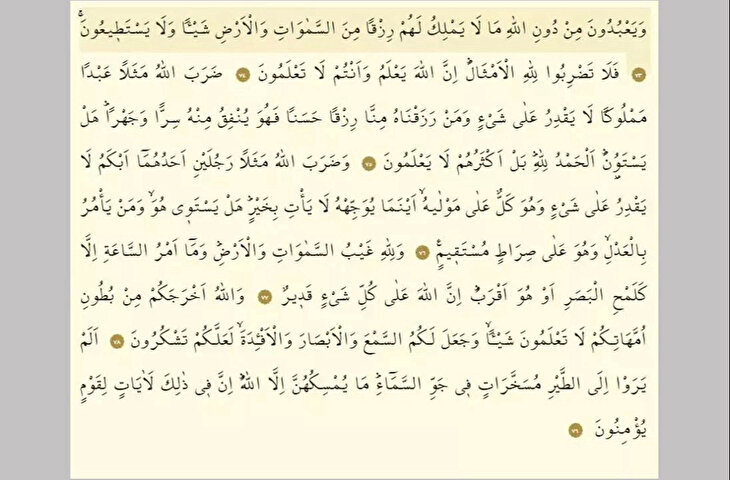 وَيَعْبُدُونَ مِنْ دُونِ اللّٰهِ مَا لَا يَمْلِكُ لَهُمْ رِزْقًا مِنَ السَّمٰوَاتِ وَالْاَرْضِ شَيْـًٔا وَلَا يَسْتَط۪يعُونَۚ
﴿٧٣﴾ فَلَا تَضْرِبُوا لِلّٰهِ الْاَمْثَالَۜ اِنَّ اللّٰهَ يَعْلَمُ وَاَنْتُمْ لَا تَعْلَمُونَ ﴿٧٤﴾ ضَرَبَ اللّٰهُ مَثَلًا عَبْدًا
مَمْلُوكًا لَا يَقْدِرُ عَلٰى شَيْءٍ وَمَنْ رَزَقْنَاهُ مِنَّا رِزْقًا حَسَنًا فَهُوَ يُنْفِقُ مِنْهُ سِرًّا وَجَهْرًاۜ هَلْ
يَسْتَوُ۫نَۜ اَلْحَمْدُ لِلّٰهِۜ بَلْ اَكْثَرُهُمْ لَا يَعْلَمُونَ ﴿٧٥﴾ وَضَرَبَ اللّٰهُ مَثَلًا رَجُلَيْنِ اَحَدُهُمَٓا اَبْكَمُ لَا
يَقْدِرُ عَلٰى شَيْءٍ وَهُوَ كَلٌّ عَلٰى مَوْلٰيهُۙ اَيْنَمَا يُوَجِّهْهُ لَا يَأْتِ بِخَيْرٍۜ هَلْ يَسْتَو۪ي هُوَۙ وَمَنْ يَأْمُرُ
بِالْعَدْلِۙ وَهُوَ عَلٰى صِرَاطٍ مُسْتَق۪يمٍ۟ ﴿٧٦﴾ وَلِلّٰهِ غَيْبُ السَّمٰوَاتِ وَالْاَرْضِۜ وَمَٓا اَمْرُ السَّاعَةِ اِلَّا
كَلَمْحِ الْبَصَرِ اَوْ هُوَ اَقْرَبُۜ اِنَّ اللّٰهَ عَلٰى كُلِّ شَيْءٍ قَد۪يرٌ ﴿٧٧﴾ وَاللّٰهُ اَخْرَجَكُمْ مِنْ بُطُونِ
اُمَّهَاتِكُمْ لَا تَعْلَمُونَ شَيْـًٔاۙ وَجَعَلَ لَكُمُ السَّمْعَ وَالْاَبْصَارَ وَالْاَفْـِٔدَةَۙ لَعَلَّكُمْ تَشْكُرُونَ ﴿٧٨﴾ اَلَمْ
يَرَوْا اِلَى الطَّيْرِ مُسَخَّرَاتٍ ف۪ي جَوِّ السَّمَٓاءِۜ مَا يُمْسِكُهُنَّ اِلَّا اللّٰهُۜ اِنَّ ف۪ي ذٰلِكَ لَاٰيَاتٍ لِقَوْمٍ
يُؤْمِنُونَ ﴿٧٩﴾